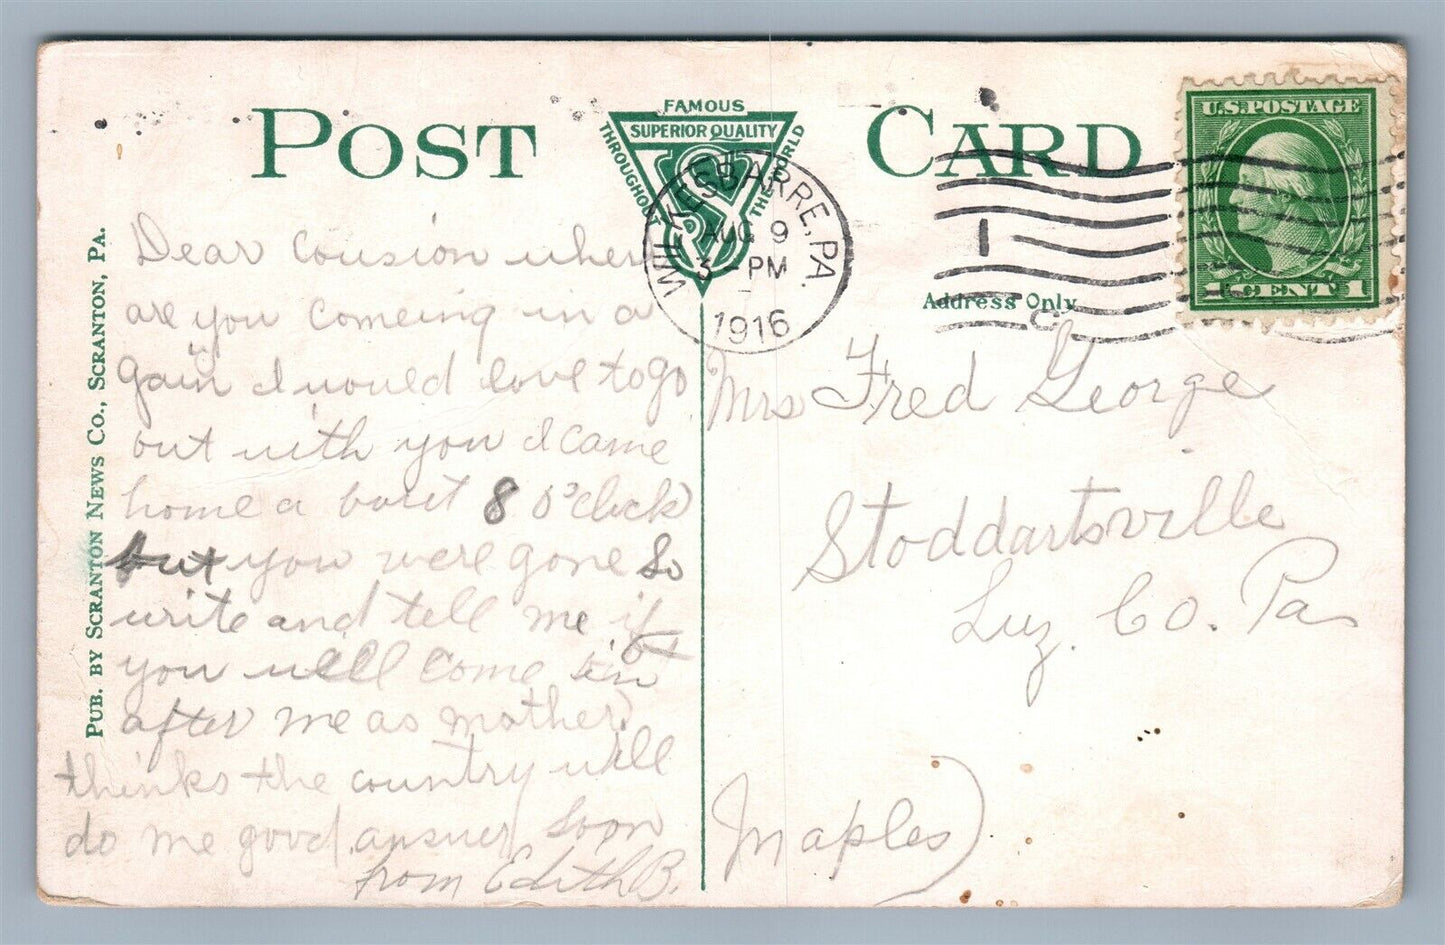 POST CARD
FAMOUS
SUPERIOR QUALITY
THROUGHOUT
THE WORLD
WILKESBARRE, PA.
AUG 9
3 - PM
1916
1
U.S. POSTAGE
1 CENT 1
Address Only
PUB. BY SCRANTON NEWS CO., SCRANTON, PA.
Dear Cousion when
are you comeing in a
gain I would love to go
out with you I came
home a bout 8 o'click
but you were gone So
write and tell me if
you will come in
after me as mother
thinks the country will
do me good. answer Soon
from Edith B.
Mrs Fred George
Stoddartsville
Luz. Co. Pa
Maples)